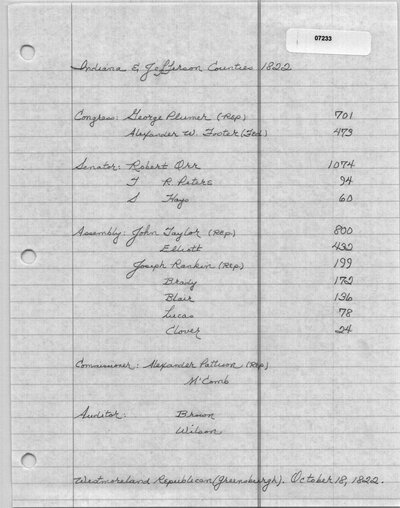 07233
Indiana & Jefferson Counties 1822
Congress: George Plumer (Rep) 701
Alexander W. Foster (Fed) 473
Senator: Robert Orr 1074
T R. Peters 94
S Hays 60
Assembly: John Taylor (Rep) 800
Elliott 432
Joseph Rankin (Rep) 199
Brady 172
Blair 136
Lucas 78
Clover 24
Commissioner: Alexander Pattison (Rep)
McComb
Auditor: Brown
Wilson
Westmoreland Republican (Greensburgh). October 18, 1822.